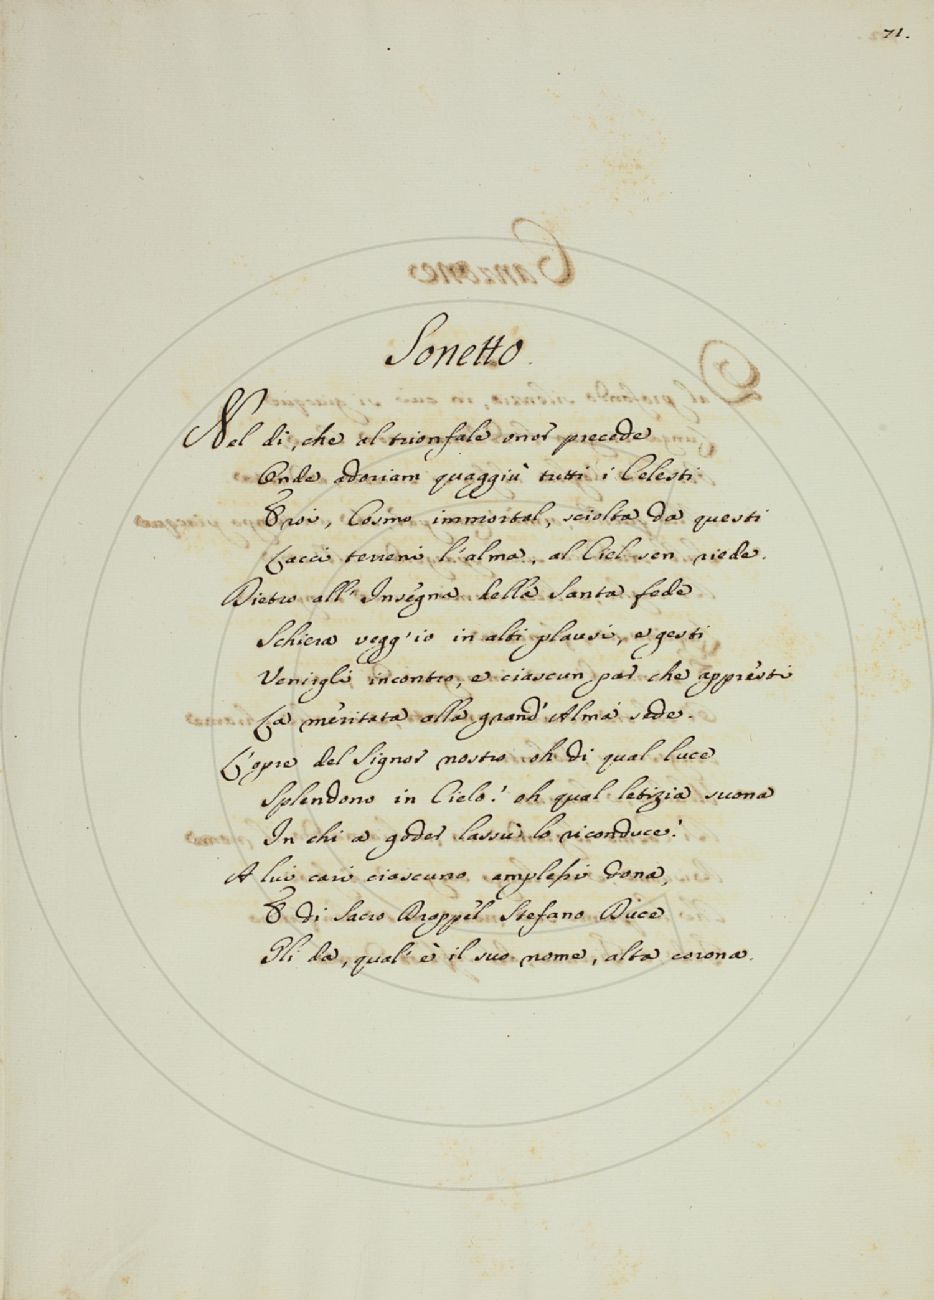 71.
Sonetto
Nel dì, che al trionfale onor precede
Onde adoriam quaggiù tutti i Celesti
Eroi, Cosmo immortal, sciolta da questi
Lacci terreni l'alma, al Ciel sen riede.
Dietro all' Insegna della Santa fede
Schiera vegg'io in alti plausi, e gesti
Venirgli incontro, e ciascun par che appresti
La meritata alla grand' Alma sede.
L'opre del Signor nostro oh di qual luce
Splendono in Cielo! oh qual letizia suona
In chi a goder lassù lo riconduce!
A lui cari ciascuno amplessi dona,
E di Sacro Drappel Stefano Duce
Gli da, qual' è il suo nome, alta corona.